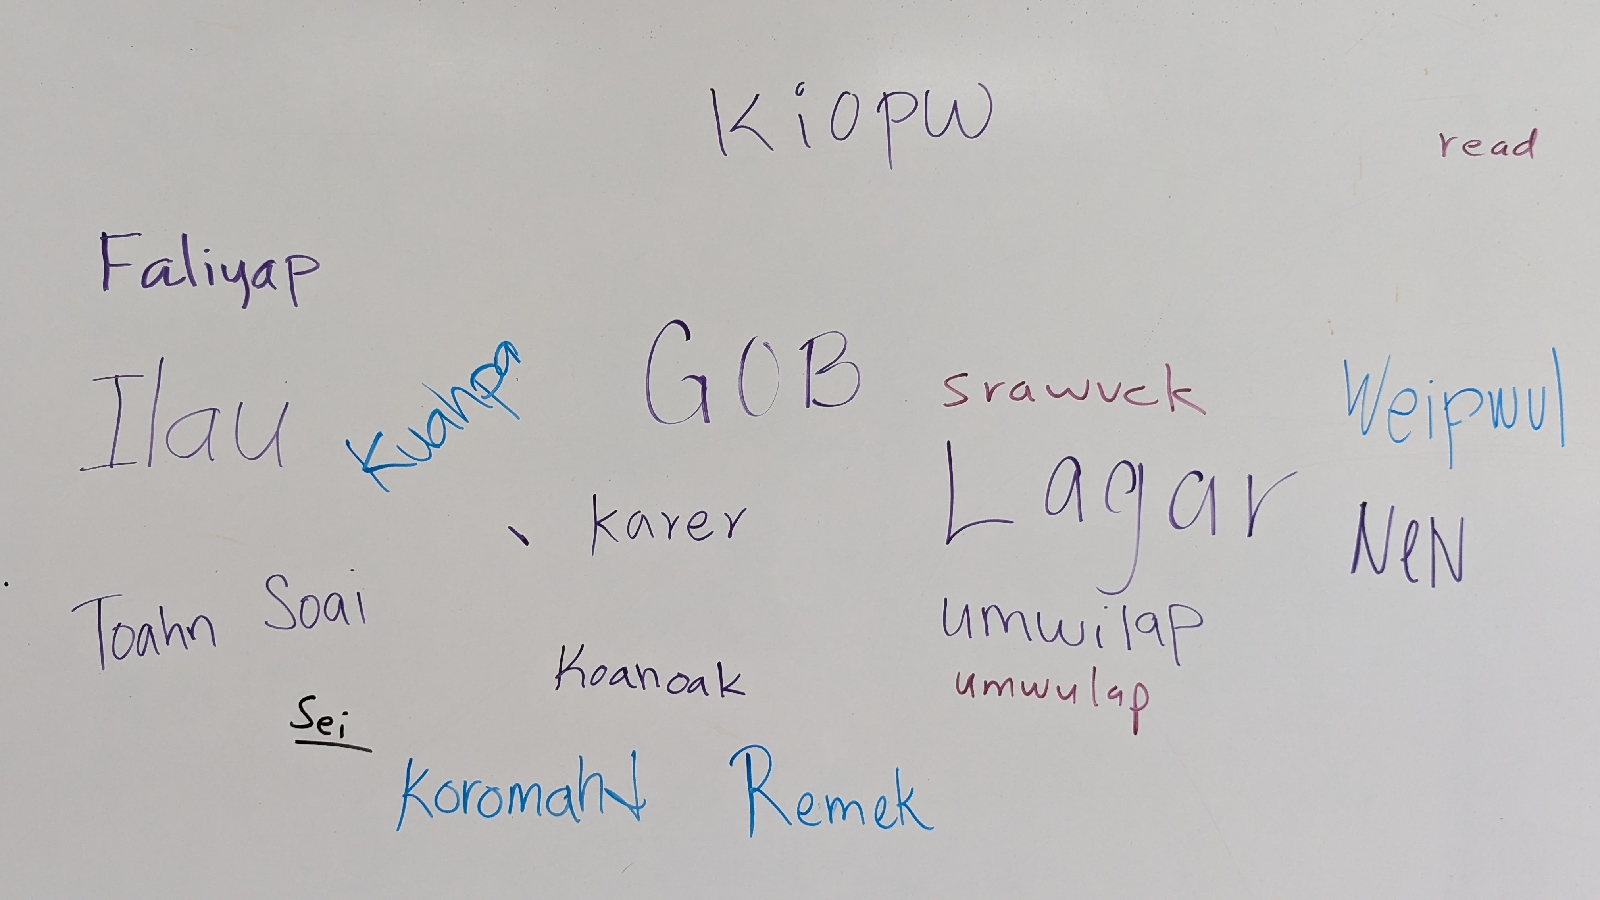 Kiopw
read
Faliyap
Ilau
Kuahpa
GOB
srawuck
Weipwul
karer
Lagar
NeN
Toahn Soai
umwilap
Koanoak
umwulap
Sei
Koromaht
Remek